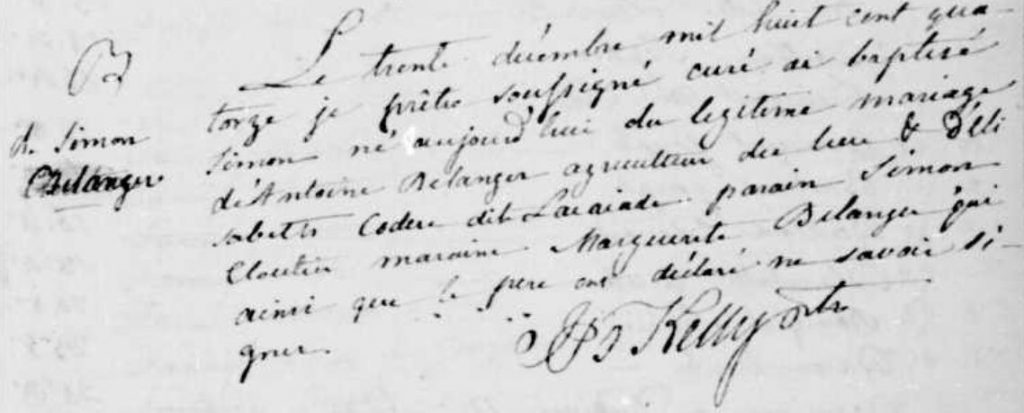 B
h. Simon
Belanger
Le trente décembre mil huit cent qua-
torze je prêtre soussigné curé ai baptisé
Simon né aujourd'hui du legitime mariage
d'Antoine Belanger agriculteur du lieu & d'Eli
sabeth Codere dit parain Simon
Cloutier maraine Marguerite Belanger qui
ainsi que le pere ont déclaré ne savoir si-
gner.
Kelly ptr